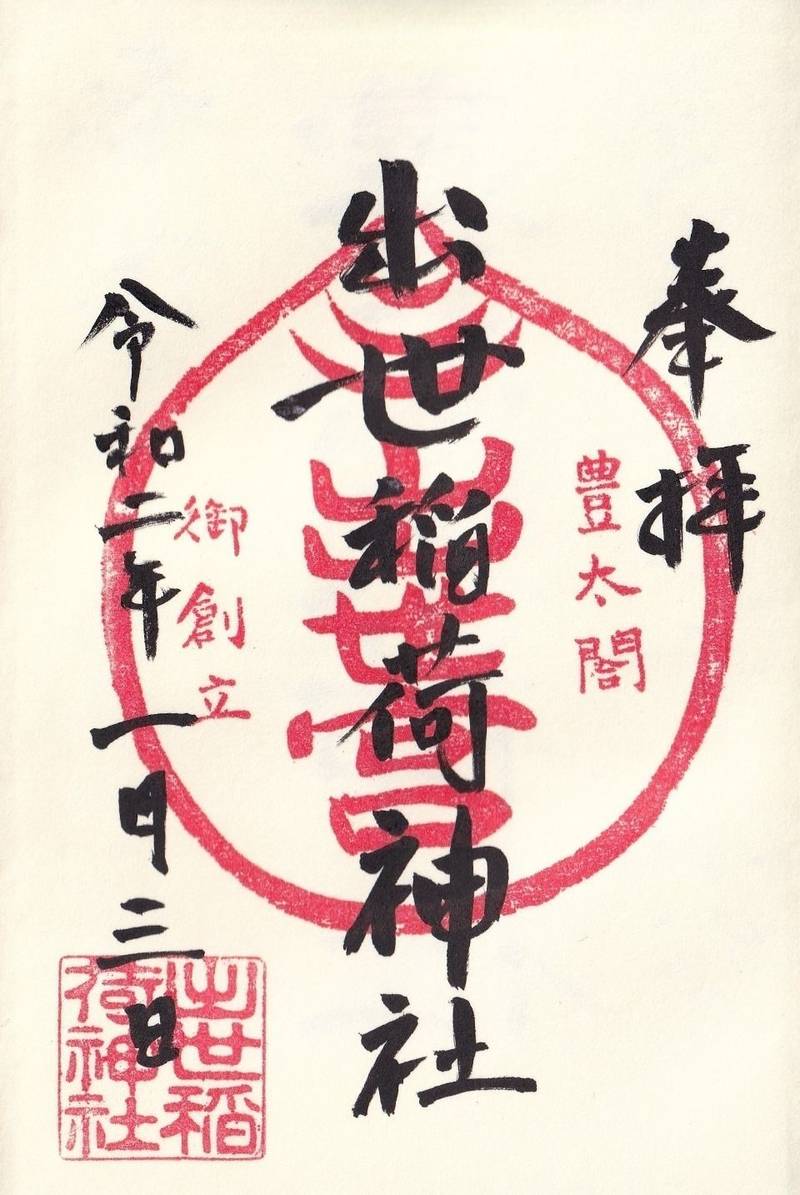 奉拝
豊太閤
出世稲荷神社
出世
御創立
令和二年一月三日
出世稲
荷神社